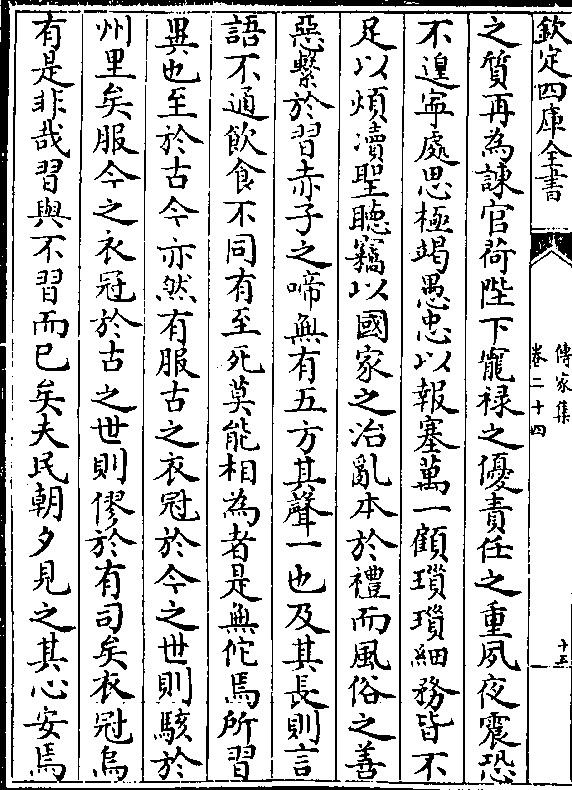 欽定四庫全書
傳家集
卷二十四
十五
之質再為諫官荷陛下寵禄之優責任之重夙夜震恐
不遑寜處思極竭愚忠以報塞萬一顧瑣瑣細務皆不
足以煩瀆聖聽竊以國家之治亂本於禮而風俗之善
惡繫於習赤子之啼無有五方其聲一也及其長則言
語不通飲食不同有至死莫能相為者是無佗焉所習
異也至於古今亦然有服古之衣冠於今之世則駭於
州里矣服今之衣冠於古之世則僇於有司矣衣冠烏
有是非哉習與不習而已矣夫民朝夕見之其心安焉